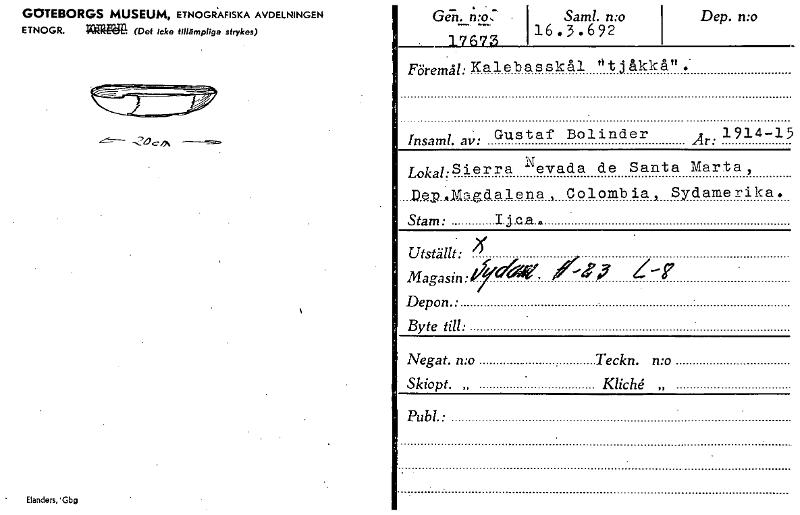 GÖTEBORGS MUSEUM, ETNOGRAFISKA AVDELNINGEN
ETNOGR. ARKEOL. (Det icke tillämpliga strykes)
20cm
Elanders, Gbg
Gen. n:o
17673
Saml. n:o
16.3.692
Dep. n:o
Föremål: Kalebasskål "tjåkkå".
Insaml. av: Gustaf Bolinder År: 1914-15
Lokal: Sierra Nevada de Santa Marta,
Dep. Magdalena, Colombia, Sydamerika.
Stam: Ijca.
Utställt: X
Magasin: Sydam. H-23 L-8
Depon.:
Byte till:
Negat. n:o Teckn. n:o
Skiopt. „ Kliché „
Publ.: